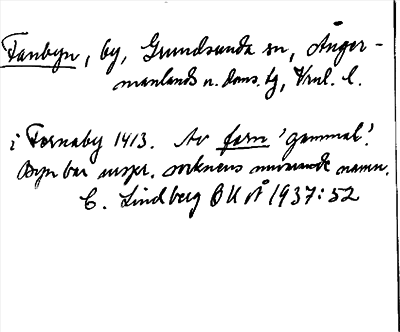 Fanbyn, by, Grundsunda sn, Ånger-
manlands n. doms. tg, Vnl. l.
i Fornaby 1413. Av forn 'gammal'.
Byn bar urspr. socknens nuvarande namn.
C. Lindberg BUÅ 1937:52